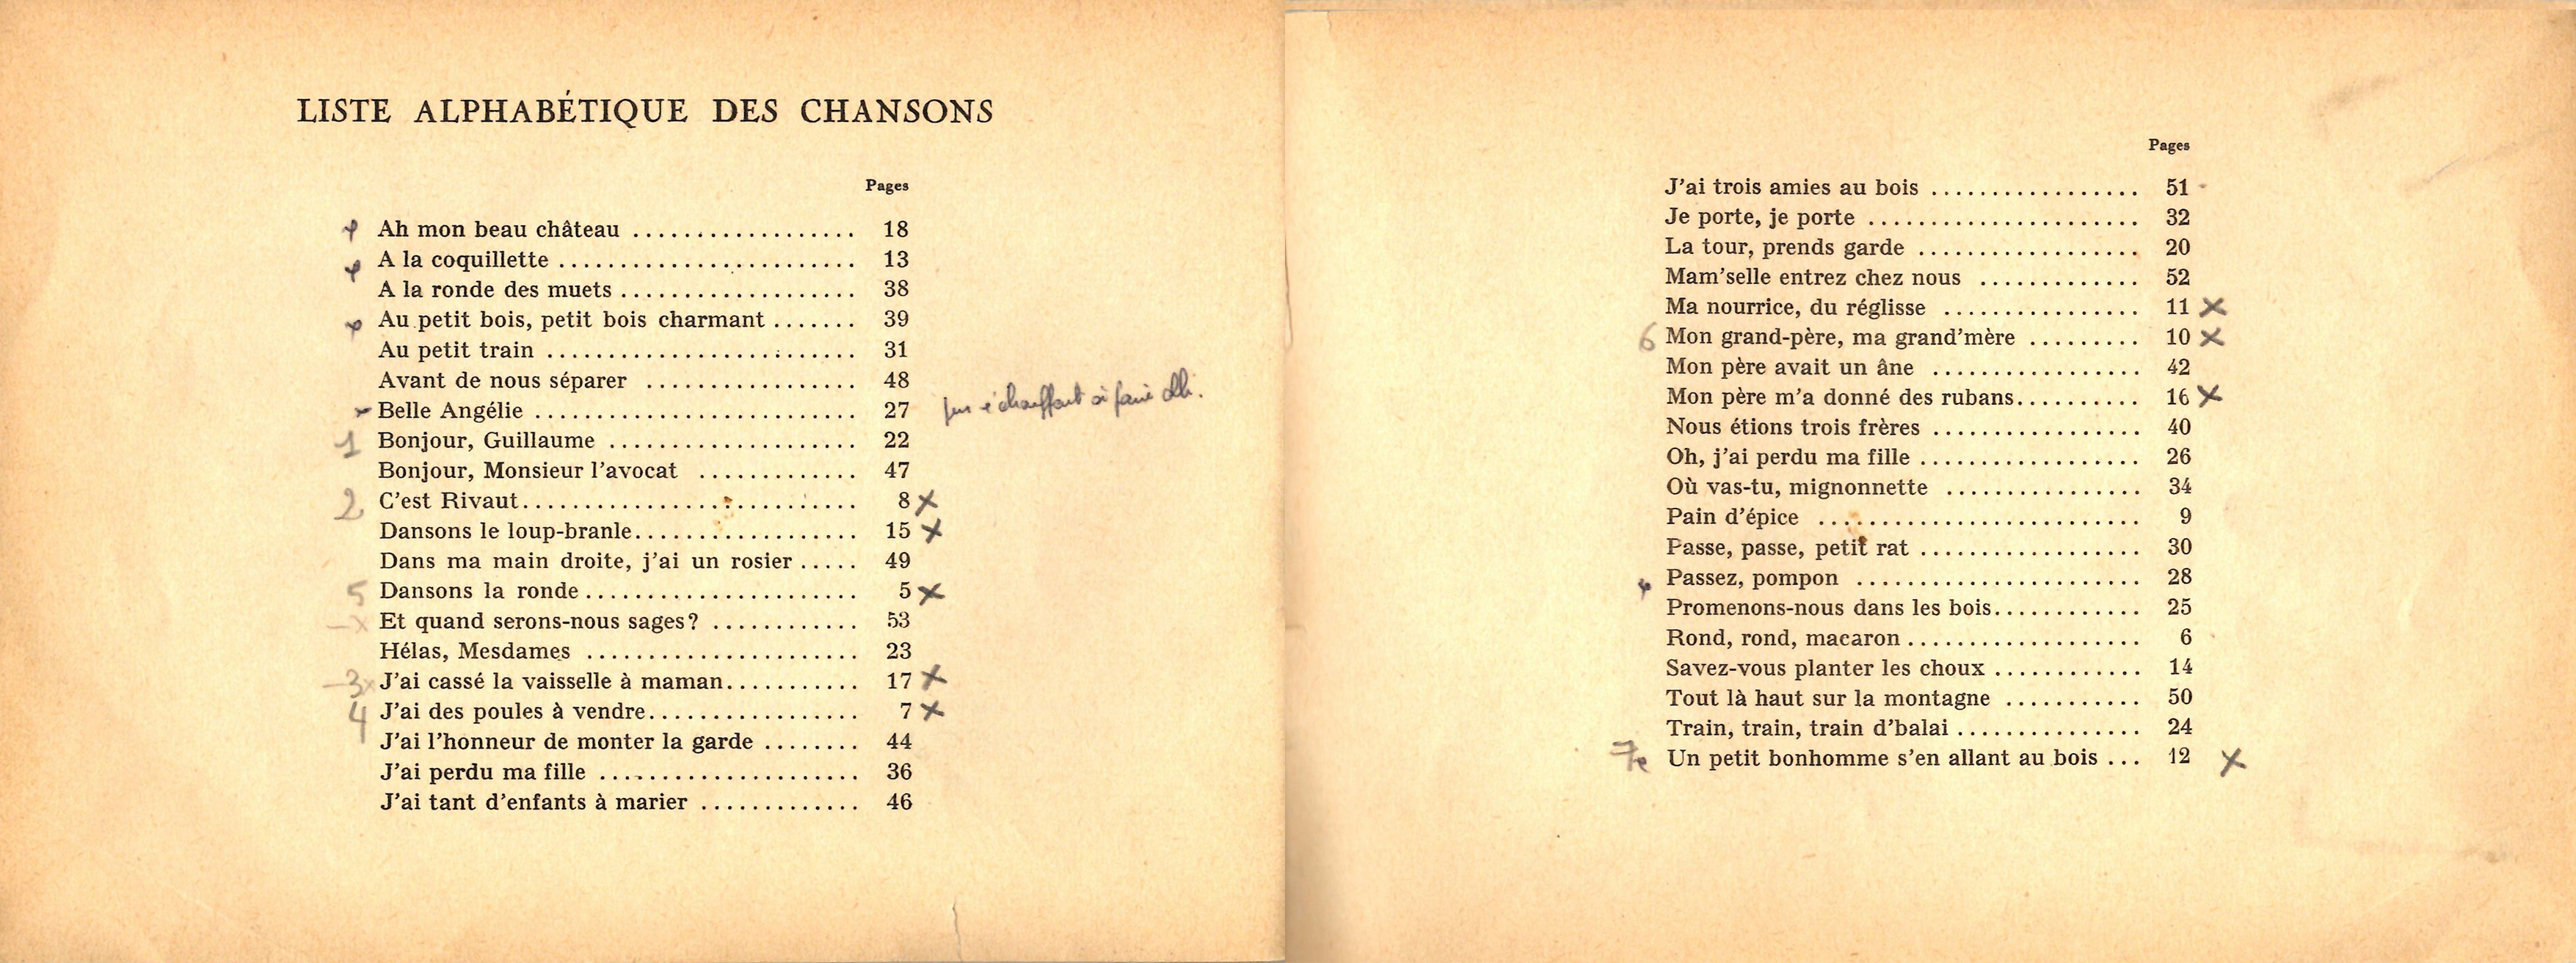 LISTE ALPHABÉTIQUE DES CHANSONS
Pages
Ah mon beau château .................. 18
A la coquillette ........................ 13
A la ronde des muets ................... 38
Au petit bois, petit bois charmant ....... 39
Au petit train ......................... 31
Avant de nous séparer ................. 48
Belle Angélie .......................... 27
1 Bonjour, Guillaume .................... 22
Bonjour, Monsieur l'avocat ............. 47
2 C'est Rivaut........................... 8 X
Dansons le loup-branle.................. 15 X
Dans ma main droite, j'ai un rosier ..... 49
5 Dansons la ronde ...................... 5 X
Et quand serons-nous sages? ............ 53
Hélas, Mesdames ...................... 23
3 J'ai cassé la vaisselle à maman........... 17 X
4 J'ai des poules à vendre................. 7 X
J'ai l'honneur de monter la garde ........ 44
J'ai perdu ma fille ..................... 36
J'ai tant d'enfants à marier ............. 46
Pages
J'ai trois amies au bois ................. 51
Je porte, je porte ...................... 32
La tour, prends garde .................. 20
Mam'selle entrez chez nous ............. 52
Ma nourrice, du réglisse ................ 11 X
6 Mon grand-père, ma grand'mère ......... 10 X
Mon père avait un âne ................. 42
Mon père m'a donné des rubans.......... 16 X
Nous étions trois frères ................. 40
Oh, j'ai perdu ma fille .................. 26
Où vas-tu, mignonnette ................ 34
Pain d'épice .......................... 9
Passe, passe, petit rat .................. 30
Passez, pompon ....................... 28
Promenons-nous dans les bois............ 25
Rond, rond, macaron ................... 6
Savez-vous planter les choux ............ 14
Tout là haut sur la montagne ........... 50
Train, train, train d'balai ............... 24
7 Un petit bonhomme s'en allant au bois ... 12 X